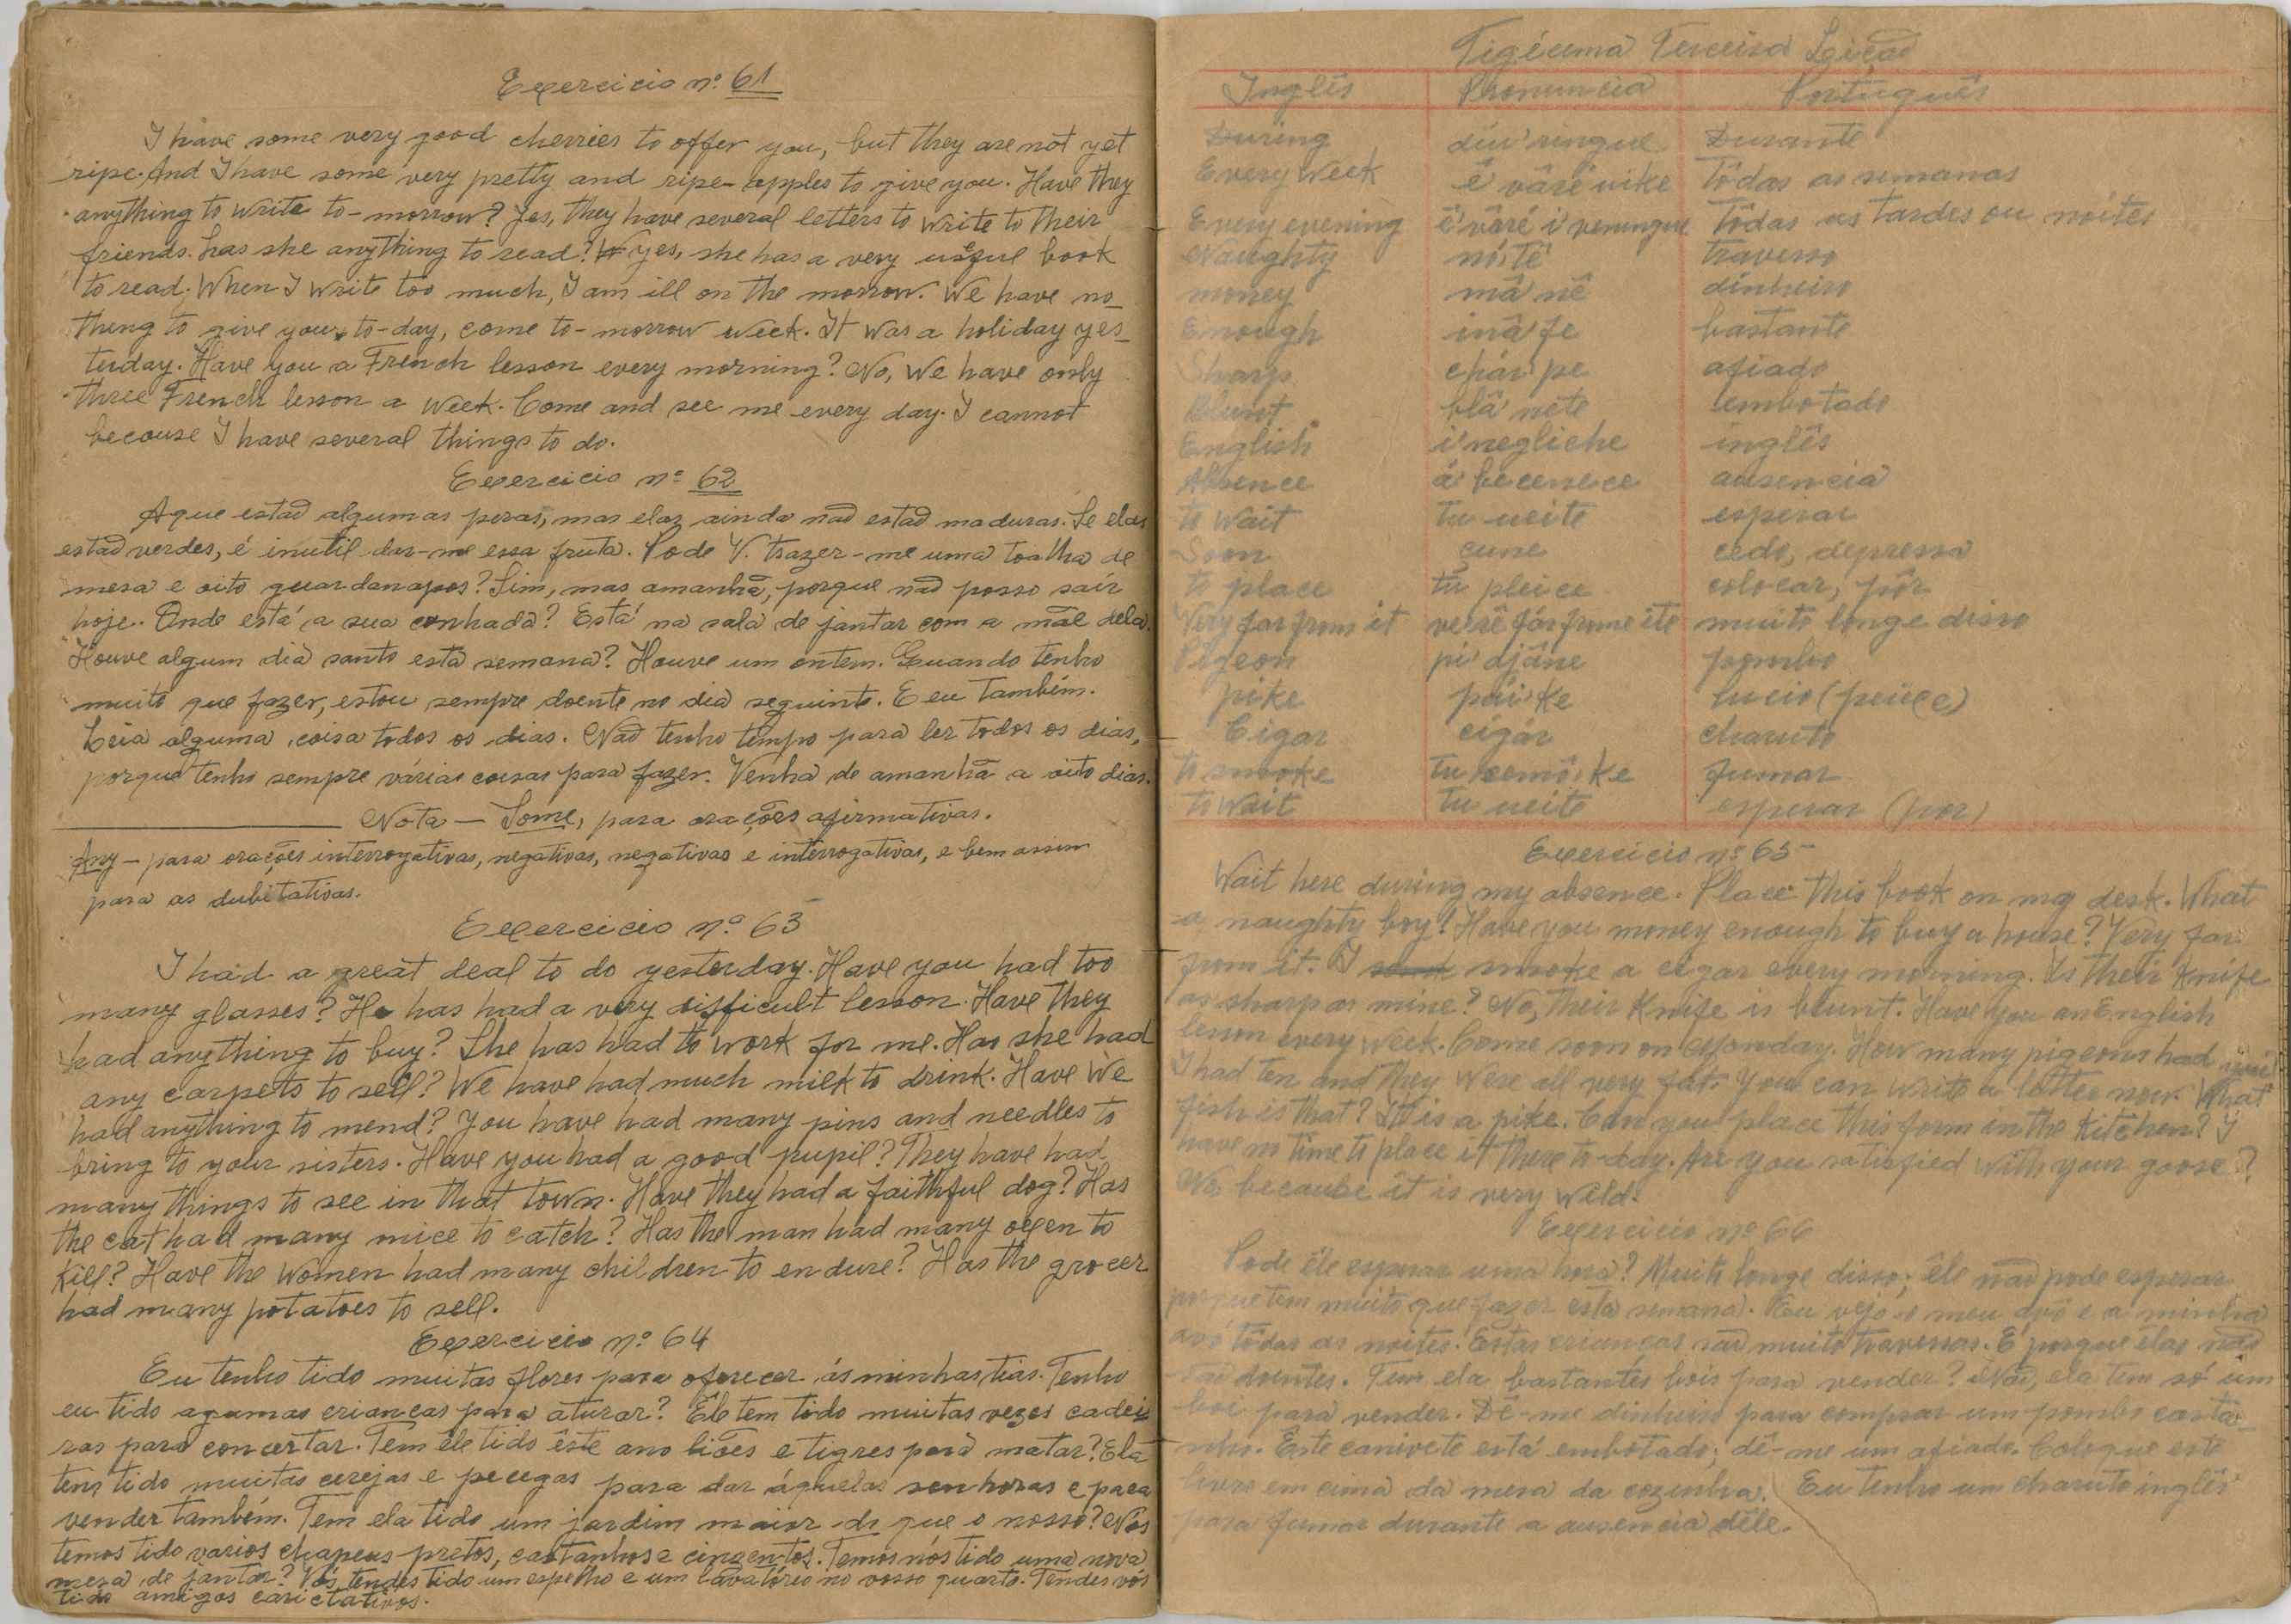 Exercicio nº 61
I have some very good cherries to offer you, but they are not yet
ripe. And I have some very pretty and ripe apples to give you. Have they
anything to write to-morrow? Yes, they have several letters to write to their
friends. Has she anything to read? Yes, she has a very useful book
to read. When I write too much, I am ill on the morrow. We have no_
thing to give you, to-day, come to-morrow week. It was a holiday yes_
terday. Have you a French lesson every morning? No, we have only
three French lesson a week. Come and see me every day. I cannot
becouse I have several things to do.
Exercicio nº 62
Aque estaõ algumas peras, mas elas ainda naõ estaõ maduras. Se elas
estaõ verdes, é inutil dar-me essa fruta. Pode V. trazer-me uma toalha de
mesa e oito guardanapos? Sim, mas amanhã, porque naõ posso sair
hoje. Onde está a sua cunhada? Está na sala de jantar com a mãe dela.
Houve algum dia santo esta semana? Houve um ontem. Quando tenho
muito que fazer, estou sempre doente no dia seguinte. E eu também.
Leia alguma coisa todos os dias. Naõ tenho tempo para ler todos os dias,
porque tenho sempre várias coisas para fazer. Venha de amanhã a oito dias.
Nota — Some, para orações afirmativas.
Any — para orações interrogativas, negativas, negativas e interrogativas, e bem assim
para as dubitativas.
Exercicio nº 63
I had a great deal to do yesterday. Have you had too
many glasses? He has had a very difficult lesson. Have they
had anything to buy? She has had to work for me. Has she had
any carpets to sell? We have had much milk to drink. Have we
had anything to mend? You have had many pins and needles to
bring to your sisters. Have you had a good pupil? They have had
many things to see in that town. Have they had a faithful dog? Has
the cat had many mice to catch? Has the man had many oxen to
kill? Have the women had many children to endure? Has the grocer
had many potatoes to sell.
Exercicio nº 64
Eu tenho tido muitas flores para oferecer ás minhas tias. Tenho
eu tido agumas crianças para aturar? Êle tem tido muitas vezes cadei_
ras para concertar. Tem êle tido êste ano liões e tigres para matar? Ela
tem tido muitas cerejas e pecegos para dar áquelas senhoras e para
vender também. Tem ela tido um jardim maior do que o nosso? Nós
temos tido varios chapeus pretos, castanhos e cinzentos. Temos nós tido uma nova
mesa de jantar? Vós tendes tido um espelho e um lavatório no vosso quarto. Tendes vós
tido amigos caritativos.
Vigécima Terceira Liçaõ
Inglês Pronuncia Português
During diu'ringue Durante
Every week é'vâré uike Tôdas as semanas
Every evening é'vâré i'veningue Tôdas as tardes ou noites
Naughty nó'tê travesso
money mâ'nê dinheiro
Enough inâ'fe bastante
Sharp chár'pe afiado
Blunt blâ'nete embotado
English i'negliche inglês
Absence á'becenece ausencia
to wait tu ueite esperar
Soon çune cedo, depressa
to place tu pleice colocar, pôr
Very far from it ve'rê fár frome ite muito longe disso
Pigeon pi'djâne pombo
pike pái'ke lucio (peixe)
Cigar cigár charuto
to smoke tu cemô'ke fumar
to wait tu ueite esperar (por)
Exercicio nº 65
Wait here during my absence. Place this book on my desk. What
a naughty boy! Have you money enough to buy a house? Very far
from it. I smoke a cigar every morning. Is their knife
as sharp as mine? No, their knife is blunt. Have you an English
lesson every week. Come soon on Monday. How many pigeons had you?
I had ten and they were all very fat. You can write a letter now. What
fish is that? It is a pike. Can you place this form in the kitchen? I
have no time to place it there to-day. Are you satisfied with your goose?
No, because it is very wild.
Exercicio nº 66
Pode êle esperar uma hora? Muito longe disso; êle naõ pode esperar
porque tem muito que fazer esta semana. Eu vejo o meu avô e a minha
avó tôdas as noites. Estas crianças saõ muito travessas. É porque elas naõ
saõ doentes. Tem ela bastantes bois para vender? Naõ, ela tem só um
boi para vender. Dê-me dinheiro para comprar um pombo casta_
nho. Este canivete está embotado; dê-me um afiado. Coloque este
livro em cima da mesa da cozinha. Eu tenho um charuto inglês
para fumar durante a ausencia dêle.